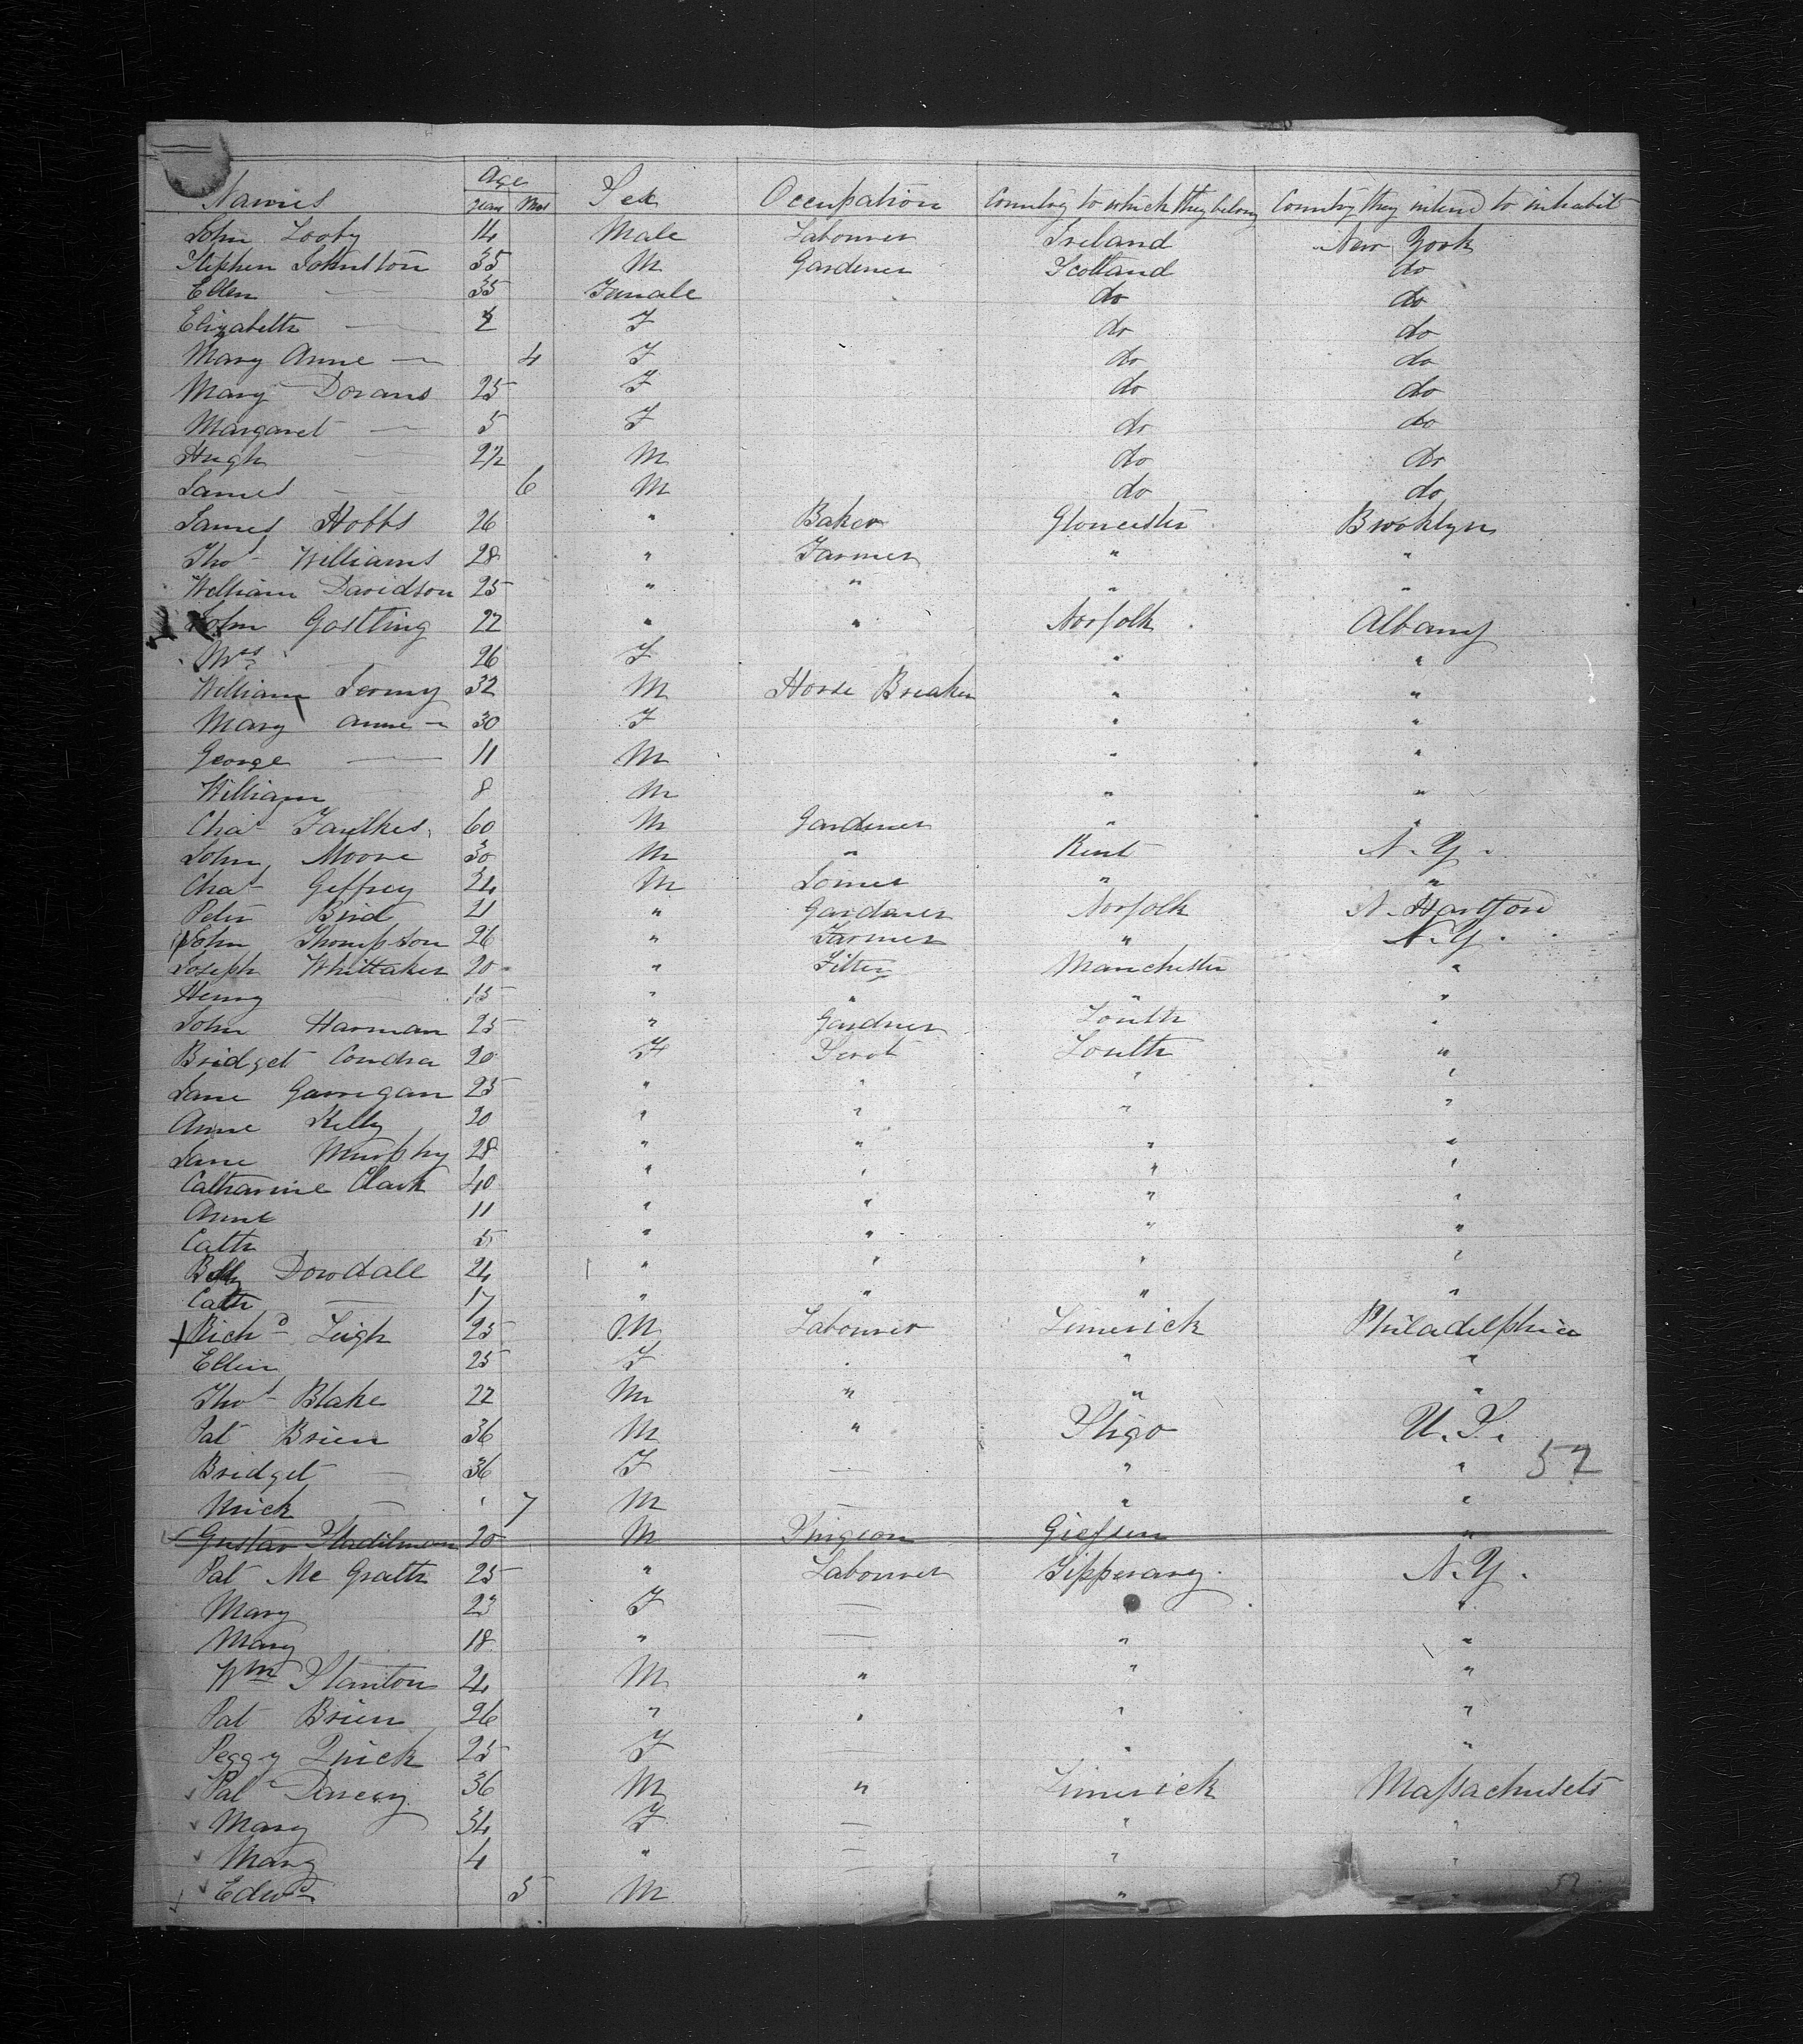 Names Age Sex Occupation Country to which they belong Country they intend to inhabit
years Mos
John Looby 14 Male Labourer Ireland New York
Stephen Johnston 35 M Gardener Scotland do
Ellen — 35 Female do do
Elizabeth — F do do
Mary Anne — 4 F do do
Mary Dorans 25 F do do
Margaret — 5 F do do
Hugh — 2½ M do do
James — 6 M do do
James Hobbs 26 " Baker Gloucester Brooklyn
Thos Williams 28 " Farmer " "
William Davidson 25 " " " "
John Gostling 22 " " Norfolk Albany
Mrs — 26 F " "
William Jermy 32 M Horse Breaker " "
Mary Anne — 30 F " "
George — 11 M " "
William 8 M " "
Chas Faulkes 60 M Gardener " "
John Moore 30 M " Kent N.Y.
Chas Geffrey 24 M Joiner " "
Peter Bird 21 " Gardener Norfolk N. Hartford
John Thompson 26 " Farmer " N.Y.
Joseph Whittaker 20 " Fitter Manchester "
Henry 15 " " " "
John Harman 25 " Gardner Louth "
Bridget Condra 20 F Servt Louth "
Jane Garrigan 25 " " " "
Anne Kelly 20 " " " "
Jane Murphy 28 " " " "
Catharine Clark 40 " " " "
Anne 11 " " " "
Cath 5 " " " "
Dowdall 24 " " " "
Cath — 17 " " " "
Richd Leigh 25 M Labourer Limerick Philadelphia
Ellen 25 F " " "
Thos Blake 22 M " " "
Pat Brien 36 M " Sligo U.S.
Bridget — 36 F — " " 52
Mick — 7 M — " "
Gustav Stadilman 20 M Surgeon Giessen "
Pat Mc Grath 25 " Labourer Tipperary N.Y.
Mary 23 F — " "
Mary 18 " — " "
Wm Stanton 24 M " " "
Pat Brien 26 " " " "
Peggy Quick 25 F — " "
Pat Darcey 36 M " Limerick Massachusets
Mary 34 F — " "
Mary 4 " — " "
Edwd 5 M " "
52